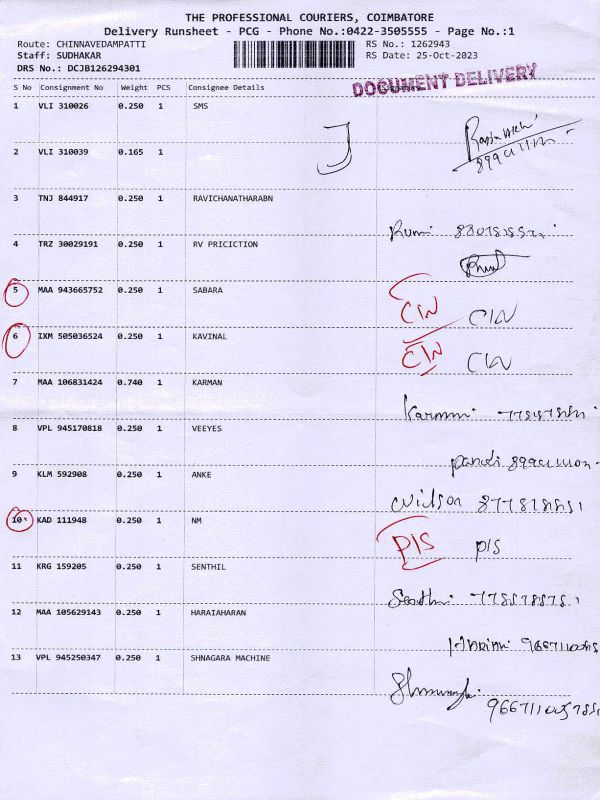 THE PROFESSIONAL COURIERS, COIMBATORE
Delivery Runsheet - PCG - Phone No.:0422-3505555 - Page No.:1
Route: CHINNAVEDAMPATTI RS No.: 1262943
Staff: SUDHAKAR RS Date: 25-Oct-2023
DRS No.: DCJB126294301
DOCUMENT DELIVERY
S No Consignment No Weight PCS Consignee Details
1 VLI 310026 0.250 1 SMS
2 VLI 310039 0.165 1
3 TNJ 844917 0.250 1 RAVICHANATHARABN
4 TRZ 30029191 0.250 1 RV PRICICTION
5 MAA 943665752 0.250 1 SABARA CIN CIN
6 IXM 505036524 0.250 1 KAVINAL CIN CIN
7 MAA 106831424 0.740 1 KARMAN
8 VPL 945170818 0.250 1 VEEYES
9 KLM 592908 0.250 1 ANKE
10 KAD 111948 0.250 1 NM PIS PIS
11 KRG 159205 0.250 1 SENTHIL
12 MAA 105629143 0.250 1 HARAIAHARAN
13 VPL 945250347 0.250 1 SHNAGARA MACHINE